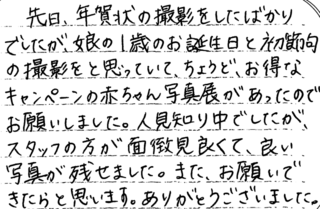 先日、年賀状の撮影をしたばかり
でしたが、娘の1歳のお誕生日と初節句
の撮影をと思っていて、ちょうど、お得な
キャンペーンの赤ちゃん写真展があったので
お願いしました。人見知り中でしたが、
スタッフの方が面倒見良くて、良い
写真が残せました。また、お願いで
きたらと思います。ありがとうございました。